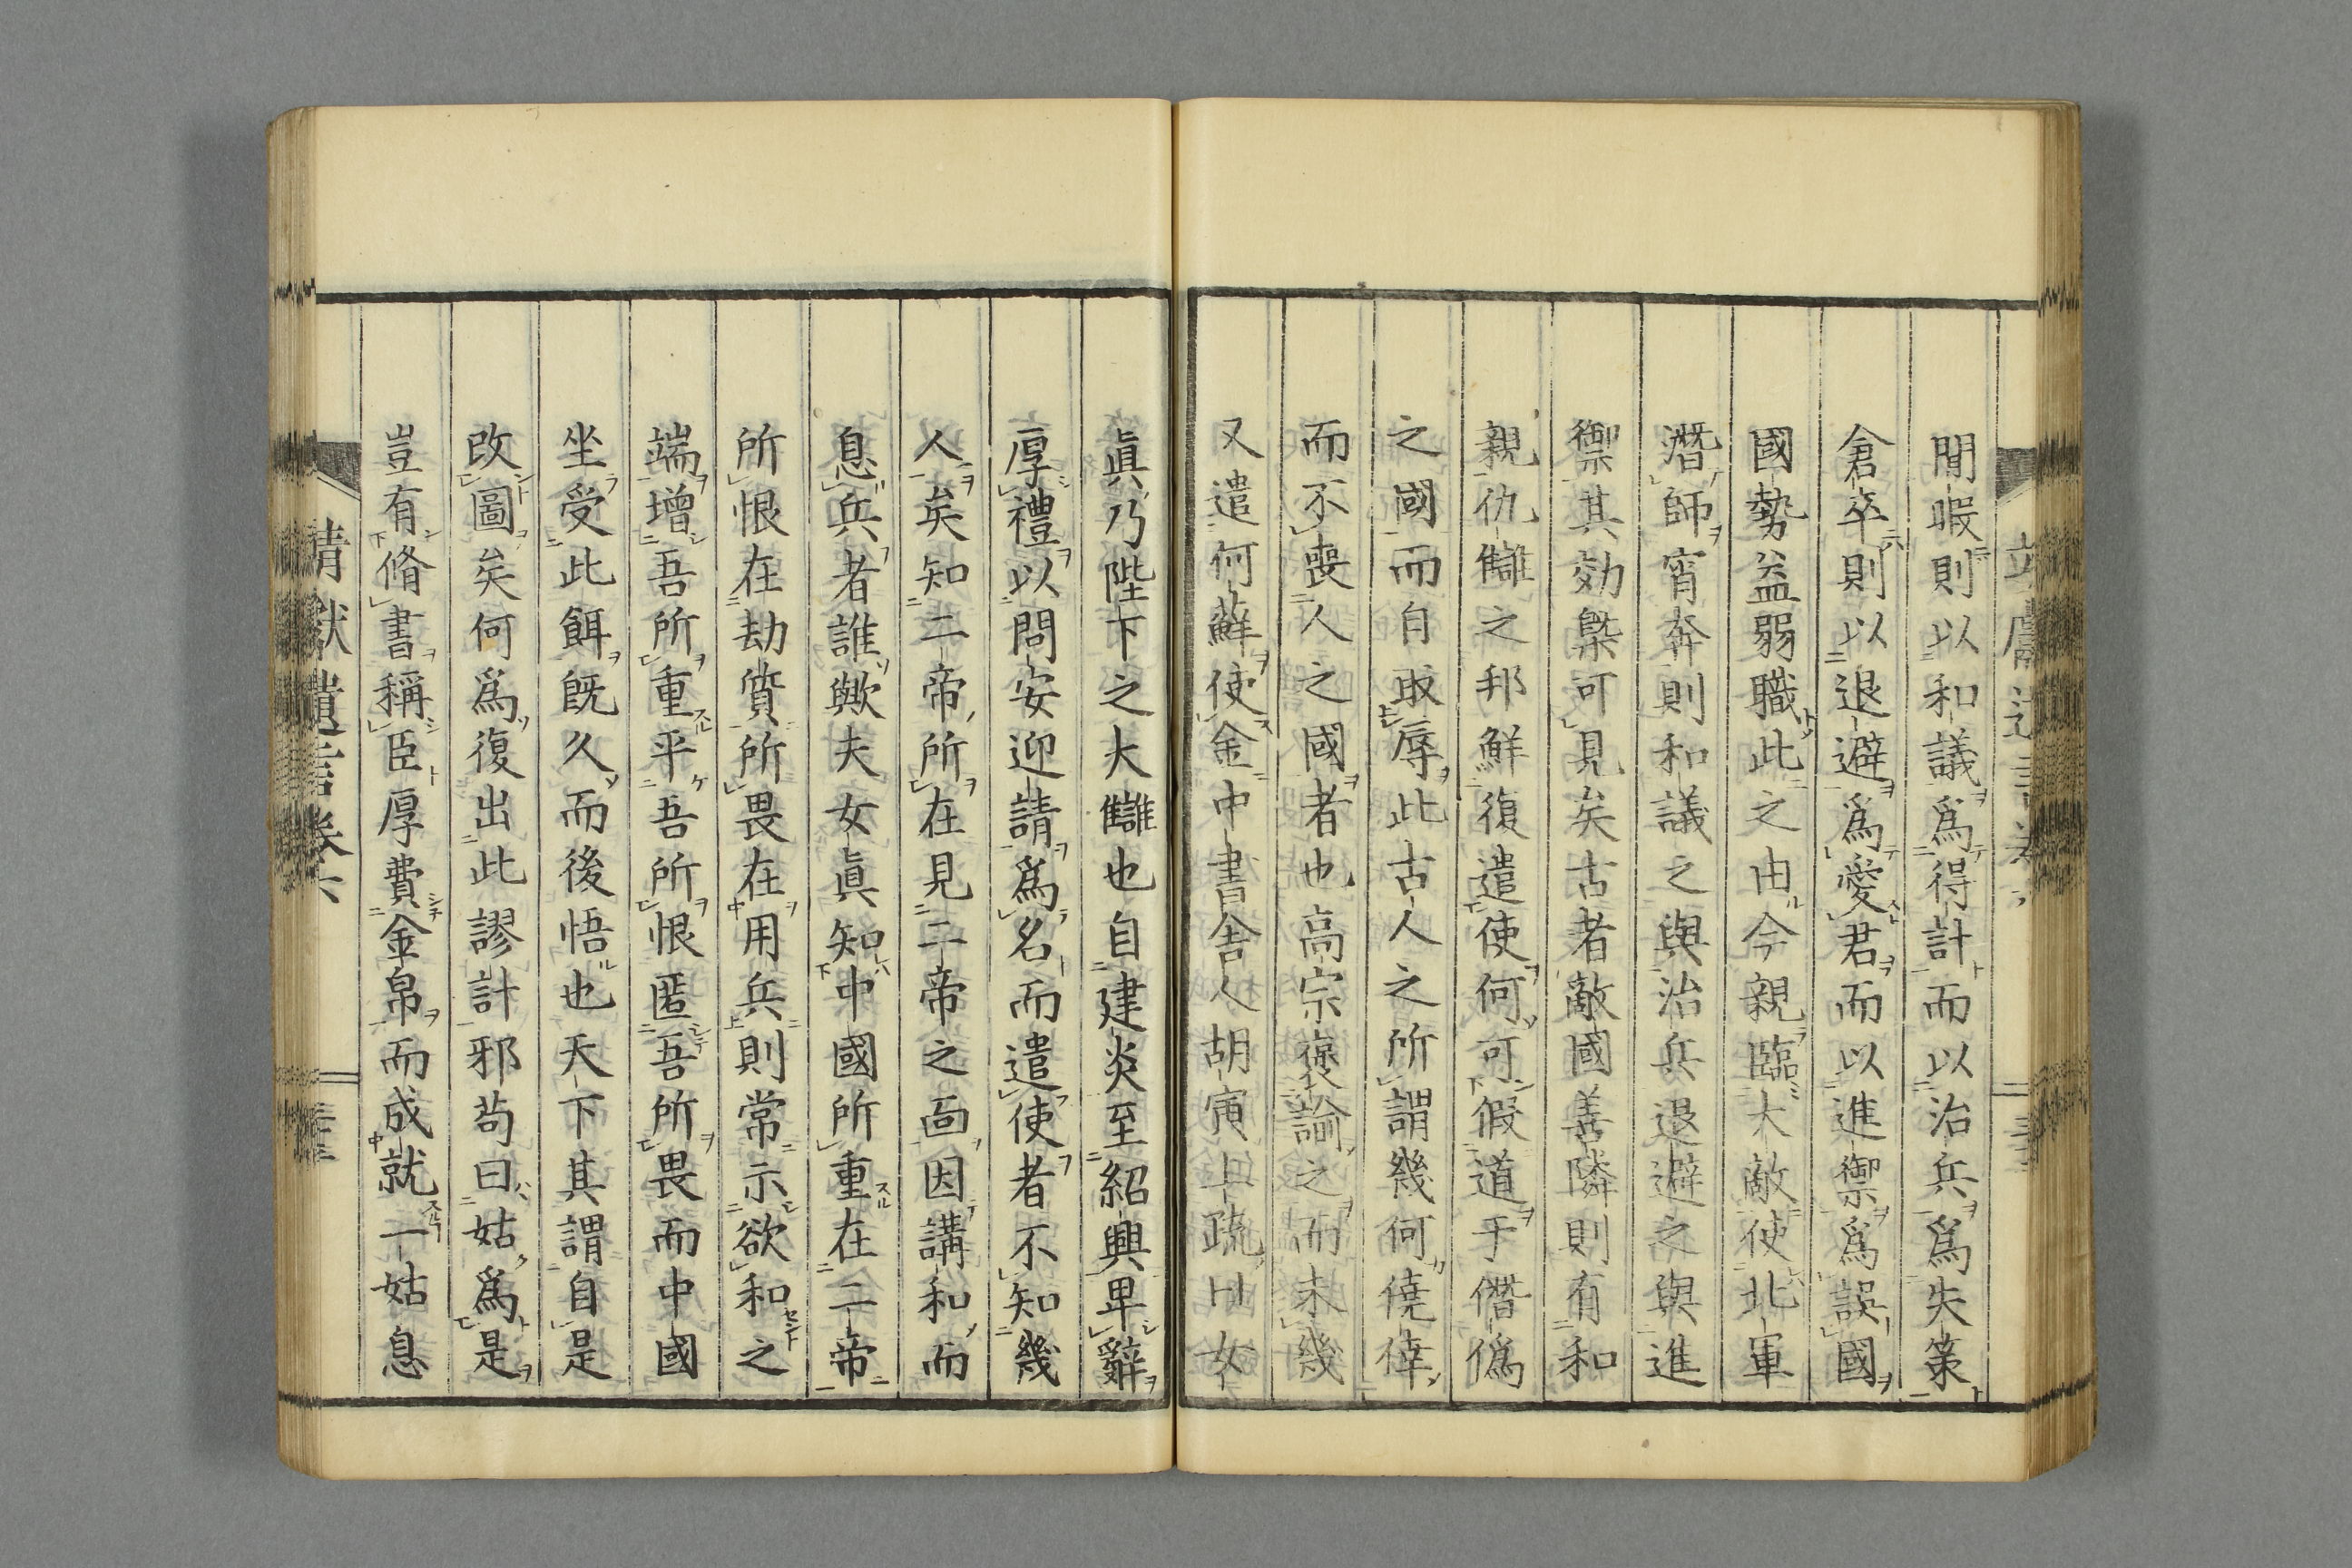 閒暇則以和議爲得計而以治兵爲失策
倉卒則以退避爲愛君而以進禦爲誤國
國勢益弱職此之由今親臨大敵使北軍
潛師宵奔則和議之與治兵退避之與進
禦其効槩可見矣古者敵國善隣則有和
親仇讎之邦鮮復遣使何可假道于僭僞
之國而自取辱此古人之所謂幾何僥倖
而不喪人之國者也高宗褒諭之而未幾
又遣何蘚使金中書舍人胡寅上疏曰女
眞乃陛下之大讎也自建炎至紹興卑辭
厚禮以問安迎請爲名而遣使者不知幾
人矣知二帝所在見二帝之面因講和而
息兵者誰歟夫女眞知中國所重在二帝
所恨在劫質所畏在用兵則常示欲和之
端增吾所重平吾所恨匿吾所畏而中國
坐受此餌既久而後悟也天下其謂自是
改圖矣何爲復出此謬計邪苟曰姑爲是
豈有脩書稱臣厚費金帛而成就一姑息
靖獻遺言卷六